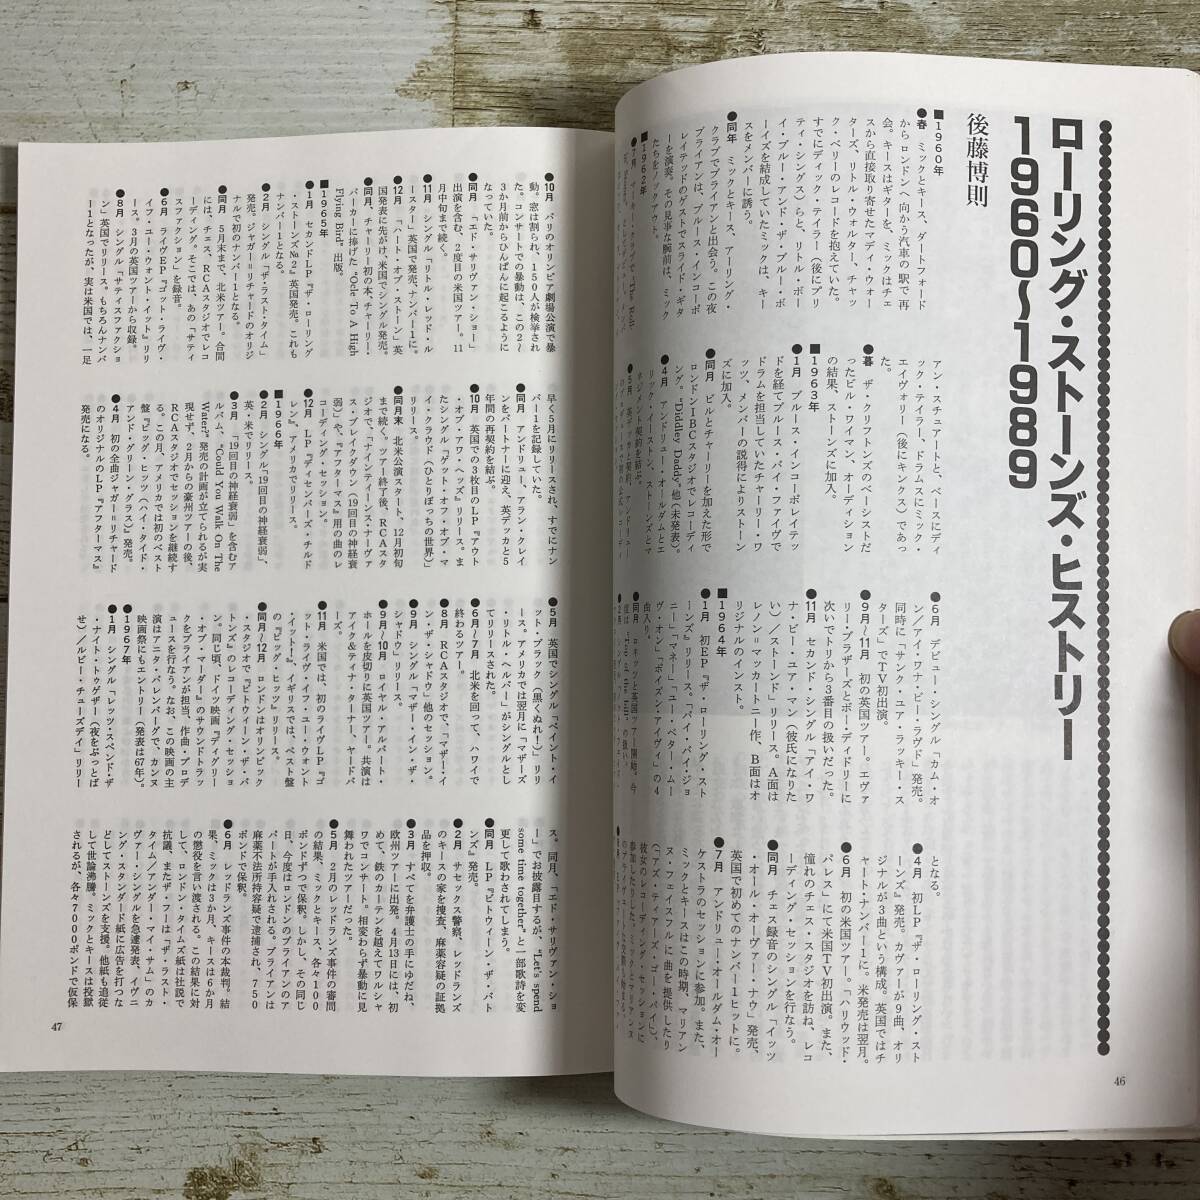 ローリング・ストーンズ・ヒストリー
1960〜1989
後藤博則
■1960年
●春 ミックとキース、ダートフォード
からロンドンへ向かう汽車の駅で再
会。キースはギターを、ミックはチェ
スから直接取り寄せたマディ・ウォー
ターズ、リトル・ウォルター、チャッ
ク・ベリーのレコードを抱えていた。
すでにディック・テイラー(後にプリ
ティ・シングス)らと、リトル・ボー
イ・ブルー・アンド・ザ・ブルー・ボ
ーイズを結成していたミックは、キー
スをメンバーに誘う。
●同年 ミックとキース、アーリング・
クラブでブライアンと出会う。この夜
ブライアンは、ブルース・インコーポ
レイテッドのゲストでスライド・ギタ
ーを演奏、その見事な腕前は、ミック
たちをノックアウト。
■1962年
アン・スチュアートと、ベースにディ
ック・テイラー、ドラムスにミック・
エイヴォリー(後にキンクス)であっ
た。
●暮 ザ・クリフトンズのベーシストだ
ったビル・ワイマン、オーディション
の結果、ストーンズに加入。
■1963年
●1月 ブルース・インコーポレイテッ
ドを経てブルース・バイ・ファイヴで
ドラムを担当していたチャーリー・ワ
ッツ、メンバーの説得によりストーン
ズに加入。
●同月 ビルとチャーリーを加えた形で
ロンドンIBCスタジオでレコーディ
ング。"Diddley Daddy"他(未発表)。
●4月 アンドリュー・オールダムとエ
リック・イーストン、ストーンズとマ
ネジメント契約を結ぶ。
●6月 デビュー・シングル「カム・オ
ン/アイ・ワナ・ビー・ラヴド」発売。
同時に「サンク・ユア・ラッキー・ス
ターズ」でTV初出演。
●9月〜11月 初の英国ツアー。エヴァ
リー・ブラザーズとボー・ディドリーに
次いでトリから3番目の扱いだった。
●11月 セカンド・シングル「アイ・ワ
ナ・ビー・ユア・マン(彼氏になりた
い)/ストーンド」リリース。A面は
レノン=マッカートニー作、B面はオ
リジナルのインスト。
■1964年
●1月 初EP『ザ・ローリング・スト
ーンズ』リリース。「バイ・バイ・ジョ
ニー」「マネー」「ユー・ベター・ムー
ヴ・オン」「ポイズン・アイヴィ」の4
曲入り。
●同月 ロネッツと英国ツアー開始。今
となる。
●4月 初LP『ザ・ローリング・スト
ーンズ』発売。カヴァーが9曲、オリ
ジナルが3曲という構成。英国ではチ
ャート・ナンバー1に。米発売は翌月。
●6月 初の米国ツアー。「ハリウッド・
パレス」にて米国TV初出演。また、
憧れのチェス・スタジオを訪ね、レコ
ーディング・セッションを行なう。
●同月 チェス録音のシングル「イッツ
・オール・オーヴァー・ナウ」発売、
英国で初めてのナンバー1ヒットに。
●7月 アンドリュー・オールダム・オー
ケストラのセッションに参加。また、
ミックとキースはこの時期、マリアン
ヌ・フェイスフルに曲を提供したり
(「アズ・ティアーズ・ゴー・バイ」)、
彼女のレコーディング・セッションに
46
●10月 パリのオリンピア劇場公演で暴
動。窓は割られ、150人が検挙され
た。コンサートでの暴動は、この2〜
3か月前からひんぱんに起こるように
なっていた。
●同月 「エド・サリヴァン・ショー」
出演を含む、2度目の米国ツアー。11
月中旬まで続く。
●11月 シングル「リトル・レッド・ル
ースター」英国で発売、ナンバー1に。
●12月 「ハート・オブ・ストーン」英
国発表に先がけ、米国でシングル発売。
●同月、チャーリー初の本、チャーリー・
パーカーに捧げた"Ode To A High
Flying Bird"出版。
■1965年
●1月 セカンドLP『ザ・ローリング
・ストーンズNo.2』英国発売。これも
ナンバー1となる。
●2月 シングル「ザ・ラスト・タイム」
発売。ジャガー=リチャードのオリジ
ナルで初のナンバー1となる。
●同月 5月末まで、北米ツアー。合間
には、チェス、RCAスタジオでレコ
ーディング。そこでは、あの「サティ
スファクション」を録音。
●6月 ライヴEP『ゴット・ライヴ・
イフ・ユー・ウォント・イット』リリ
ース。3月の英国ツアーから収録。
●8月 シングル「サティスファクショ
ン」英国でリリース。もちろんナンバ
ー1となったが、実は米国では、一足
早く5月にリリースされ、すでにナン
バー1を記録していた。
●同月 アンドリュー、アラン・クレイ
ンをパートナーに迎え、英デッカと5
年間の再契約を結ぶ。
●10月 英国での3枚目のLP『アウト
・オブ・アワ・ヘッズ』リリース。ま
たシングル「ゲット・オフ・オブ・マ
イ・クラウド(ひとりぼっちの世界)」
●同月末 北米公演スタート、12月初旬
まで続く。ツアー終了後、RCAスタ
ジオで、「ナインティーンス・ナーヴァ
ス・ブレイクダウン(19回目の神経衰
弱)」や、『アフターマス』用の曲のレ
コーディング・セッション。
●12月 LP『ディセンバーズ・チルド
レン』、アメリカでリリース。
■1966年
●2月 シングル「19回目の神経衰弱」、
英・米でリリース。
●3月 「19回目の神経衰弱」を含むア
ルバム、"Could You Walk On The
Water?"発売の計画が立てられるが実
現せず、2月からの豪州ツアーの後、
RCAスタジオでセッションを継続す
る。この月、アメリカでは初のベスト
盤『ビッグ・ヒッツ(ハイ・タイド・
アンド・グリーン・グラス)』発売。
●4月 初の全曲ジャガー=リチャード
のオリジナルのLP『アフターマス』
発売になる。
●5月 英国でシングル「ペイント・イ
ット・ブラック(黒くぬれ!)」リリ
ース。アメリカでは翌月に「マザーズ
・リトル・ヘルパー」がシングルとし
てリリースされた。
●6月〜7月 北米を回って、ハワイで
終わるツアー。
●8月 RCAスタジオで、「マザー・イ
ン・ザ・シャドウ」他のセッション。
●9月 シングル「マザー・イン・ザ・
シャドウ」リリース。
●9月〜10月 ロイヤル・アルバート・
ホールを皮切りに英国ツアー。共演は
アイク&ティナ・ターナー、ヤードバ
ーズ。
●11月 米国では、初のライヴLP『ゴ
ット・ライヴ・イフ・ユー・ウォント
・イット!』、イギリスでは、ベスト盤
の『ビッグ・ヒッツ』リリース。
●同月〜12月 ロンドンはオリンピック
・スタジオで『ビトウィーン・ザ・バ
トンズ』のレコーディング・セッショ
ン。同じ頃、ドイツ映画『ディグリー
・オブ・マーダー』のサウンドトラッ
クをブライアンが担当、作曲・プロデ
ュースを行なう。なお、この映画の主
演はアニタ・パレンバーグで、カンヌ
映画祭にもエントリー(発表は67年)。
■1967年
●1月 シングル「レッツ・スペンド・ザ
・ナイト・トゥゲザー(夜をぶっとば
せ)/ルビー・チューズデイ」リリー
ス。同月、「エド・サリヴァン・ショ
ー」でお披露目するが、"Let's spend
some time together"と一部歌詩を変
更して歌わされてしまう。
●同月 LP『ビトウィーン・ザ・バト
ンズ』発売。
●2月 サセックス警察、レッドランズ
のキースの家を捜査、麻薬容疑の証拠
品を押収。
●3月 すべてを弁護士の手にゆだね、
欧州ツアーに出発。4月13日には、初
めて、鉄のカーテンを越えてワルシャ
ワでコンサート。相変わらず暴動に見
舞われたツアーだった。
●5月 2月のレッドランズ事件の審問
の結果、ミックとキース、各々100
ポンドずつで保釈。しかし、その同じ
日、今度はロンドンのブライアンのア
パートが手入れされる。ブライアンは
麻薬不法所持容疑で逮捕され、750
ポンドで保釈。
●6月 レッドランズ事件の本裁判。結
果、ミックは3か月、キースは6か月
の懲役を言い渡される。この結果に対
して、ロンドン・タイムズ紙は社説で
抗議、またザ・フーは「ザ・ラスト・
タイム/アンダー・マイ・サム」のカ
ヴァー・シングルを急遽発表、イヴニ
ング・スタンダード紙に広告を打つな
どしてストーンズを支援。他紙も追従
して世論沸騰。ミックとキースは投獄
されるが、各々7000ポンドで仮保
47